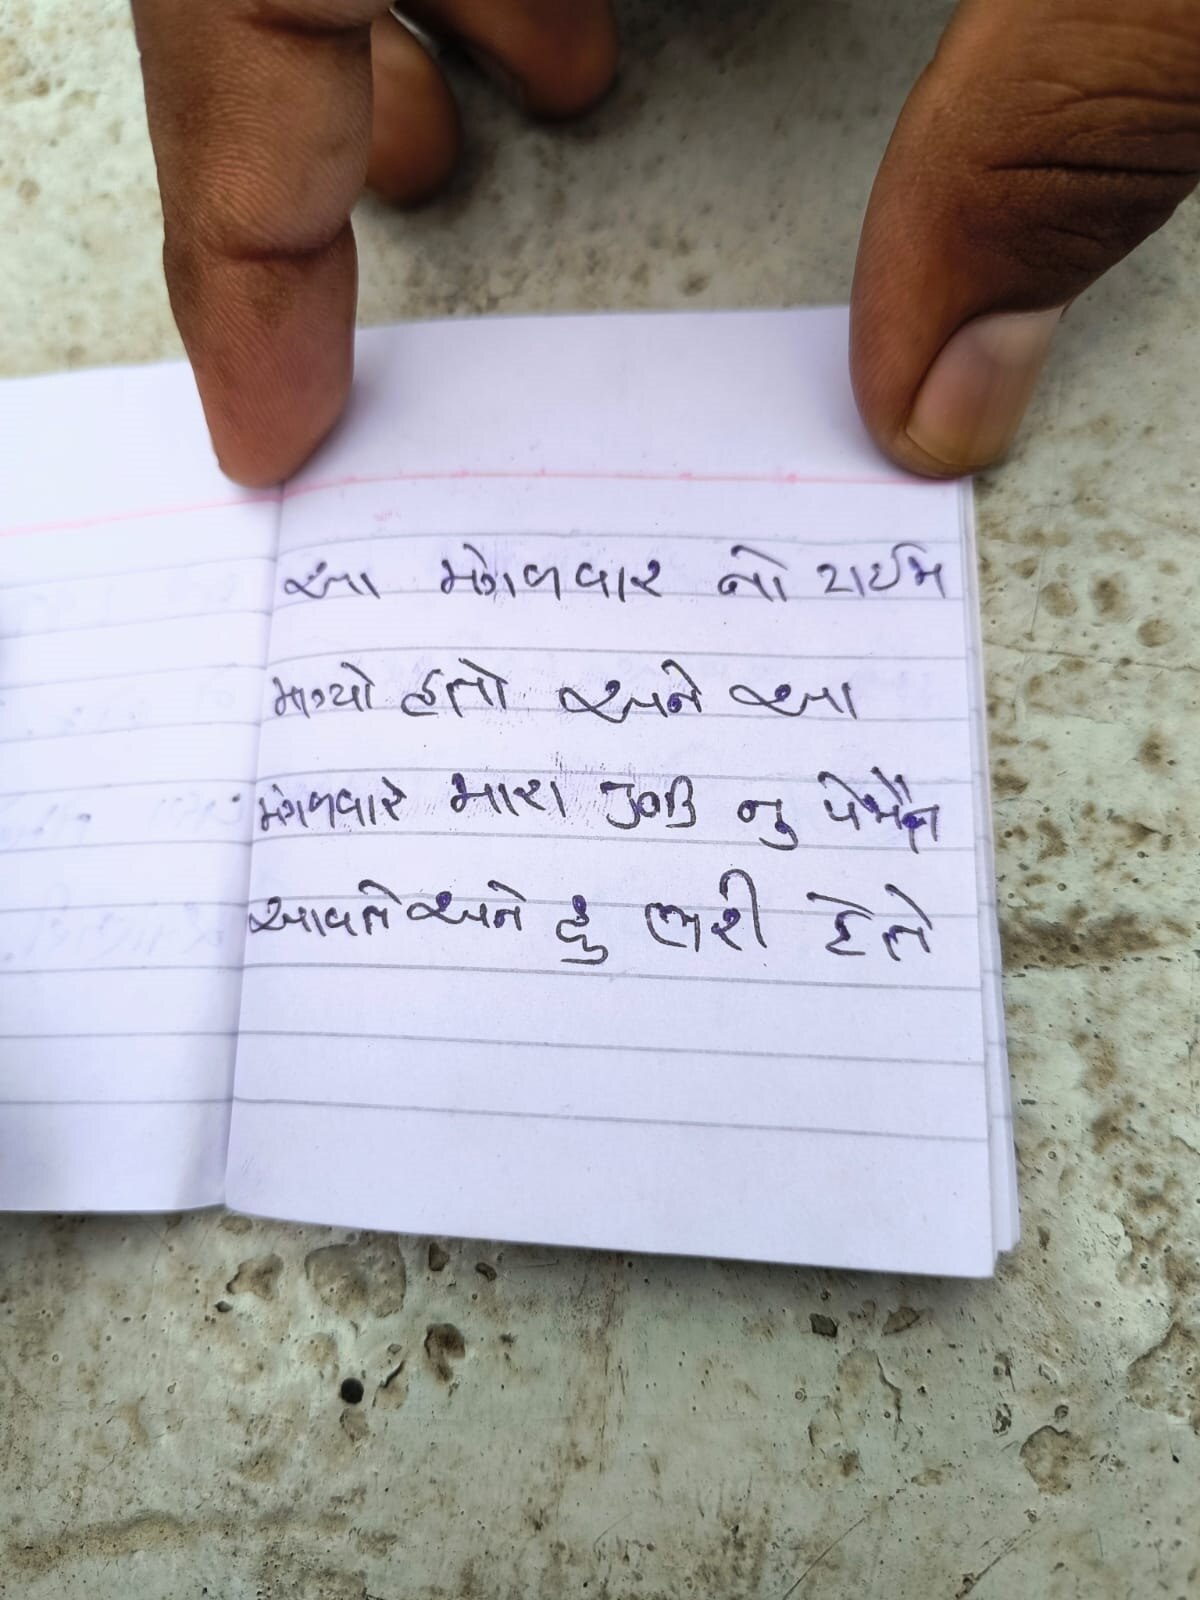 આ મંગળવાર નો ટાઈમ
માગ્યો હતો અને આ
મંગળવારે મારા JOB નુ પેમેન્ટ
આવતે અને હુ ભરી દેતે